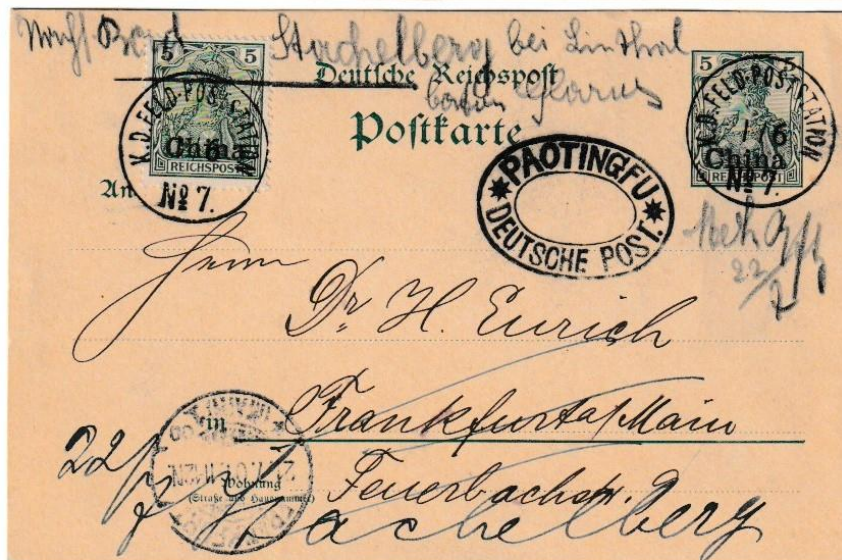 Stachelberg bei Linthal
Deutsche Reichspost
Glarus
Postkarte
5 5
China
REICHSPOST
K.D. FELD-POSTSTATION
No 7.
5
China
REICHSPOST
K.D. FELD-POSTSTATION
1/6
No 7.
PAOTINGFU
DEUTSCHE POST.
An
Herrn
Dr H. Eurich
in
Frankfurt a/Main
22/7
Wohnung
(Straße und Hausnummer)
Feuerbachstr. 9
Stachelberg